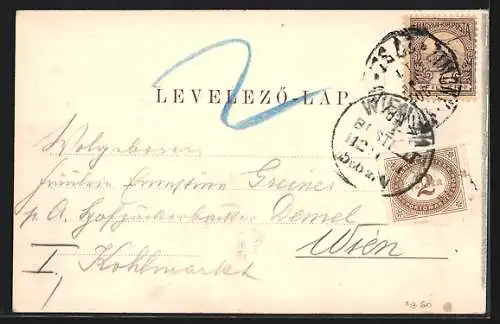 LEVELEZŐ-LAP.
Wolgeboren
Fräulein Ernestine Greiner
p. A. Hofzuckerbäcker Demel
Wien
I. Kohlmarkt
WIEN
2